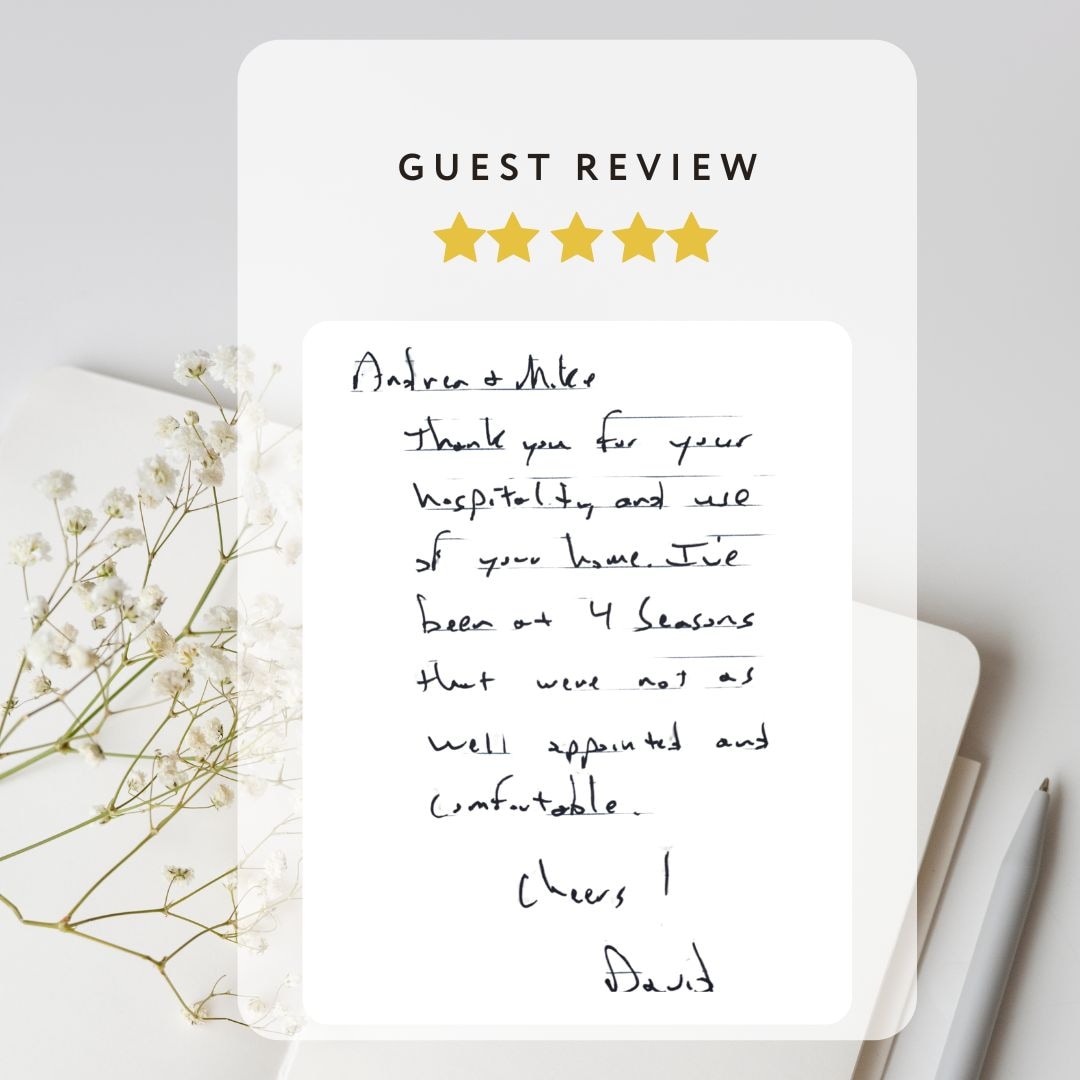 GUEST REVIEW
Andrea & Mike
Thank you for your
hospitality and use
of your home. I've
been at 4 Seasons
that were not as
well appointed and
comfortable.
Cheers!
David